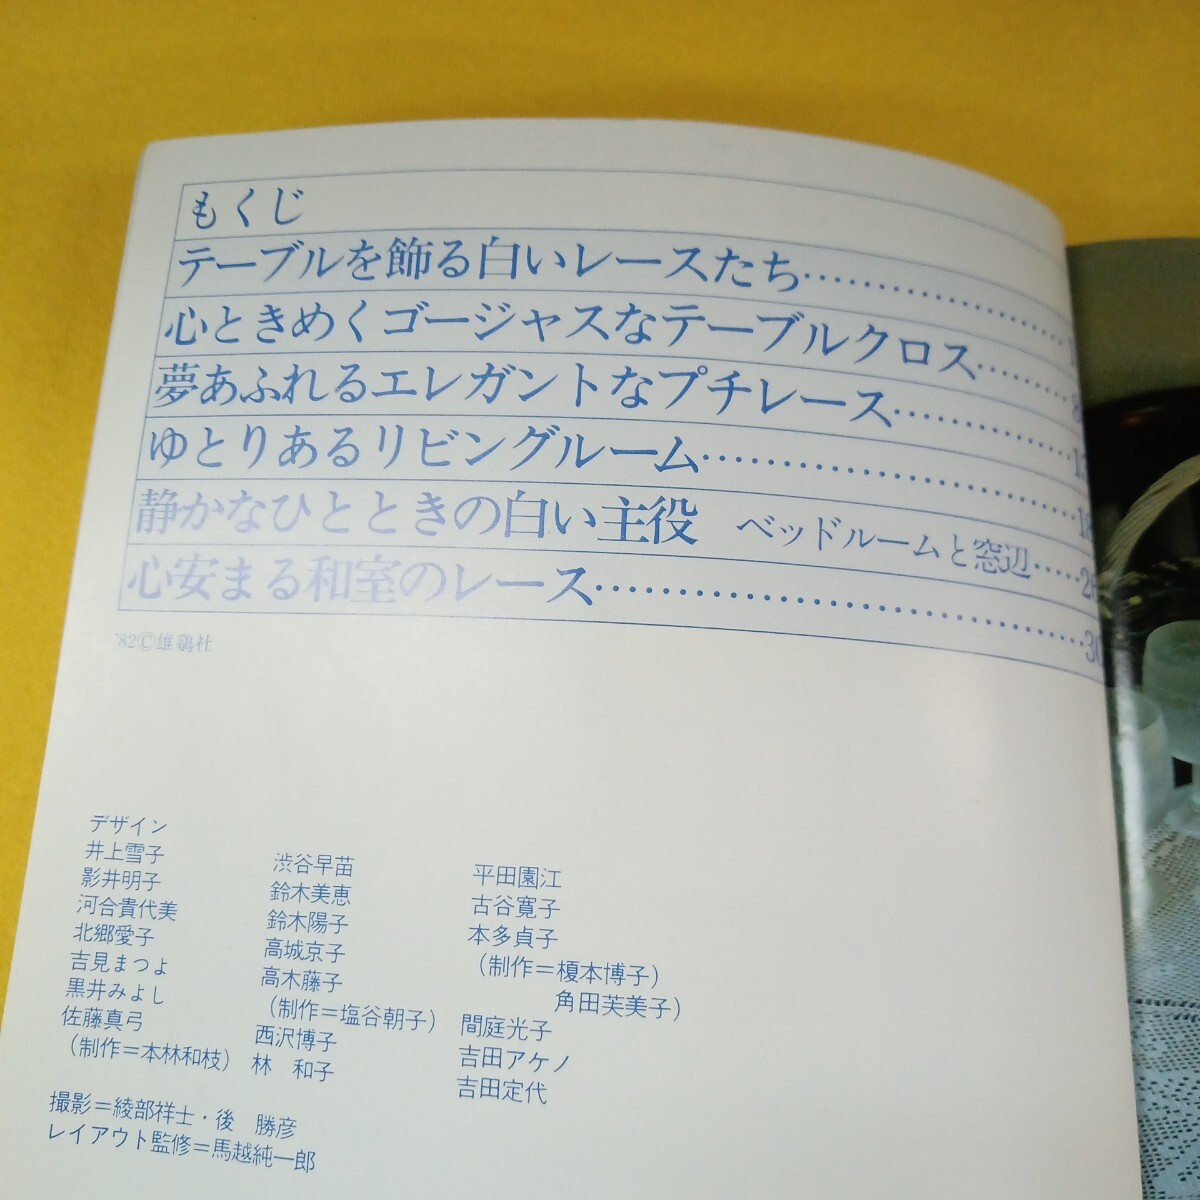 もくじ
テーブルを飾る白いレースたち……………1
心ときめくゴージャスなテーブルクロス……8
夢あふれるエレガントなプチレース…………
ゆとりあるリビングルーム……………………18
静かなひとときの白い主役 ベッドルームと窓辺……26
心安まる和室のレース…………………………30
'82©雄鶏社
デザイン
井上雪子
影井明子
河合貴代美
北郷愛子
吉見まつよ
黒井みよし
佐藤真弓
(制作=本林和枝)
渋谷早苗
鈴木美恵
鈴木陽子
高城京子
高木藤子
(制作=塩谷朝子)
西沢博子
林 和子
平田園江
古谷寛子
本多貞子
(制作=榎本博子)
角田芙美子)
間庭光子
吉田アケノ
吉田定代
撮影=綾部祥士・後 勝彦
レイアウト監修=馬越純一郎